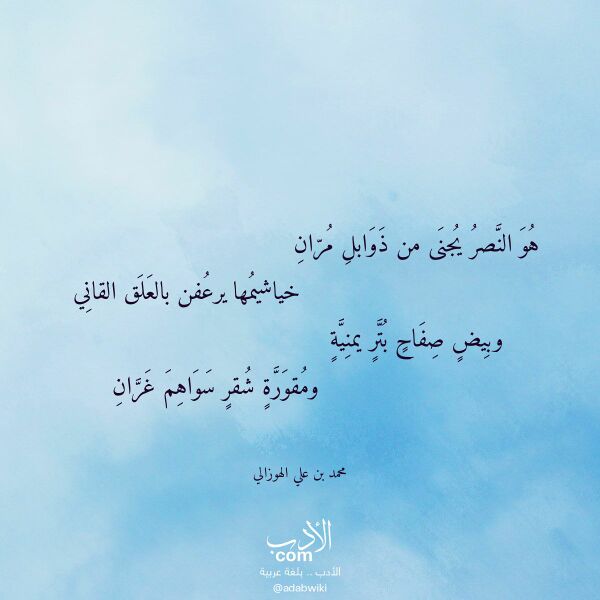 هُوَ النَّصرُ يُجنَى من ذَوَابلِ مُرّانِ
خياشيمُها يرعُفن بالعَلَق القانِي
وبِيضٍ صِفَاحٍ بُتَّرٍ يمنِيَّةٍ
ومُقوَرَّةٍ شُقرٍ سَوَاهِمَ غَرَّانِ
محمد بن علي الهوزالي
الأدب
com
الأدب .. بلغة عربية
@adabwiki